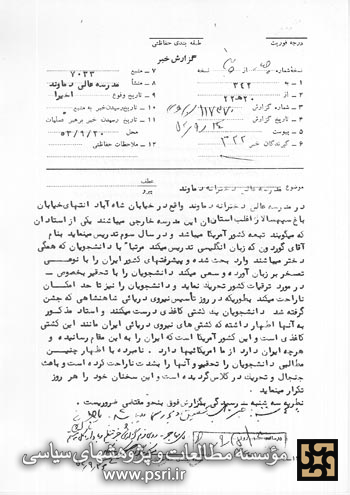 درجه فوریت
طبقه بندی حفاظتی
گزارش خبر
نسخه شماره از نسخه
۱ – به ۳۲۲
۷ – منبع ۷۰۳۳
۲ – از ۲۰ه۲۲
۸ – منشأ مدرسه عالی دماوند
۳ – شماره گزارش
۹ – تاریخ وقوع اخیرا
۴ – تاریخ گزارش
۱۰ – تاریخ رسیدن خبر به منبع
۵ – پیوست
۱۱ – تاریخ رسیدن خبر برهبر عملیات
محل ۵۳/۹/۲۰
۶ – گیرندگان خبر ۳۲۲
۱۲ – ملاحظات حفاظتی
موضوع مدرسه عالی دخترانه دماوند
عطف
پیرو
در مدرسه عالی دخترانه دماوند واقع در خیابان شاه آباد انتهای خیابان
باغ سپهسالار اغلب استادان این مدرسه خارجی میباشند یکی از استادان
که میگویند تبعه کشور آمریکا میباشد و در سال سوم تدریس مینماید بنام
آقای گوردون که زبان انگلیسی تدریس میکند مرتبا" با دانشجویان که همگی
دختر میباشند وارد بحث شده و پیشرفتهای کشور ایران را با نوعی
تمسخر بر زبان آورده و سعی میکند دانشجویان را با تحقیر بخصوص –
در مورد ترقیات کشور تحریک نماید و دانشجویان را نیز تا حد امکان
ناراحت میکند بطوریکه در روز تأسیس نیروی دریائی شاهنشاهی که جشن
گرفته شد دانشجویان یک کشتی کاغذی درست میکنند و استاد مذکور
به آنها اظهار داشته که کشتی های نیروی دریائی ایران مانند این کشتی
کاغذی است و این کشور آمریکا است که ایران را به این مقام رسانیده و
هرچه ایران دارد از ما امریکائیها دارد . نامبرده با اظهار چنین
مطالبی دانشجویان را تحقیر و آنها را بشدت ناراحت کرده است و باعث
جنجال و تحریک در کلاس گردیده است و این سخنان خود را هر روز
تکرار مینماید .
نظریه سه شنبه – رسیدگی بگزارش فوق بنحو مقتضی ضروریست .
مؤسسه مطالعات و پژوهشهای سیاسی
www.psri.ir